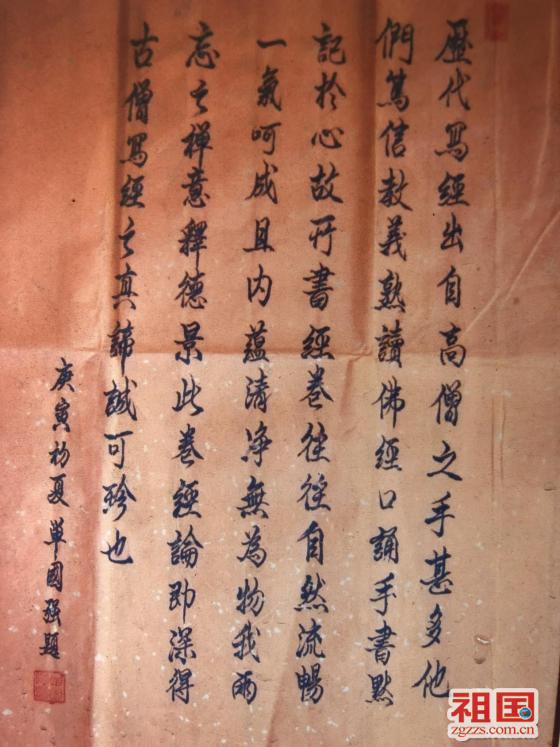 歷代寫經出自高僧之手甚多他
們篤信教義熟讀佛經口誦手書默
記於心故所書經卷往往自然流暢
一氣呵成且内蘊清净無為物我兩
忘之禪意釋德景此卷經論即深得
古僧寫經之真諦誠可珍也
庚寅初夏單國强題
祖国
zgzzs.com.cn